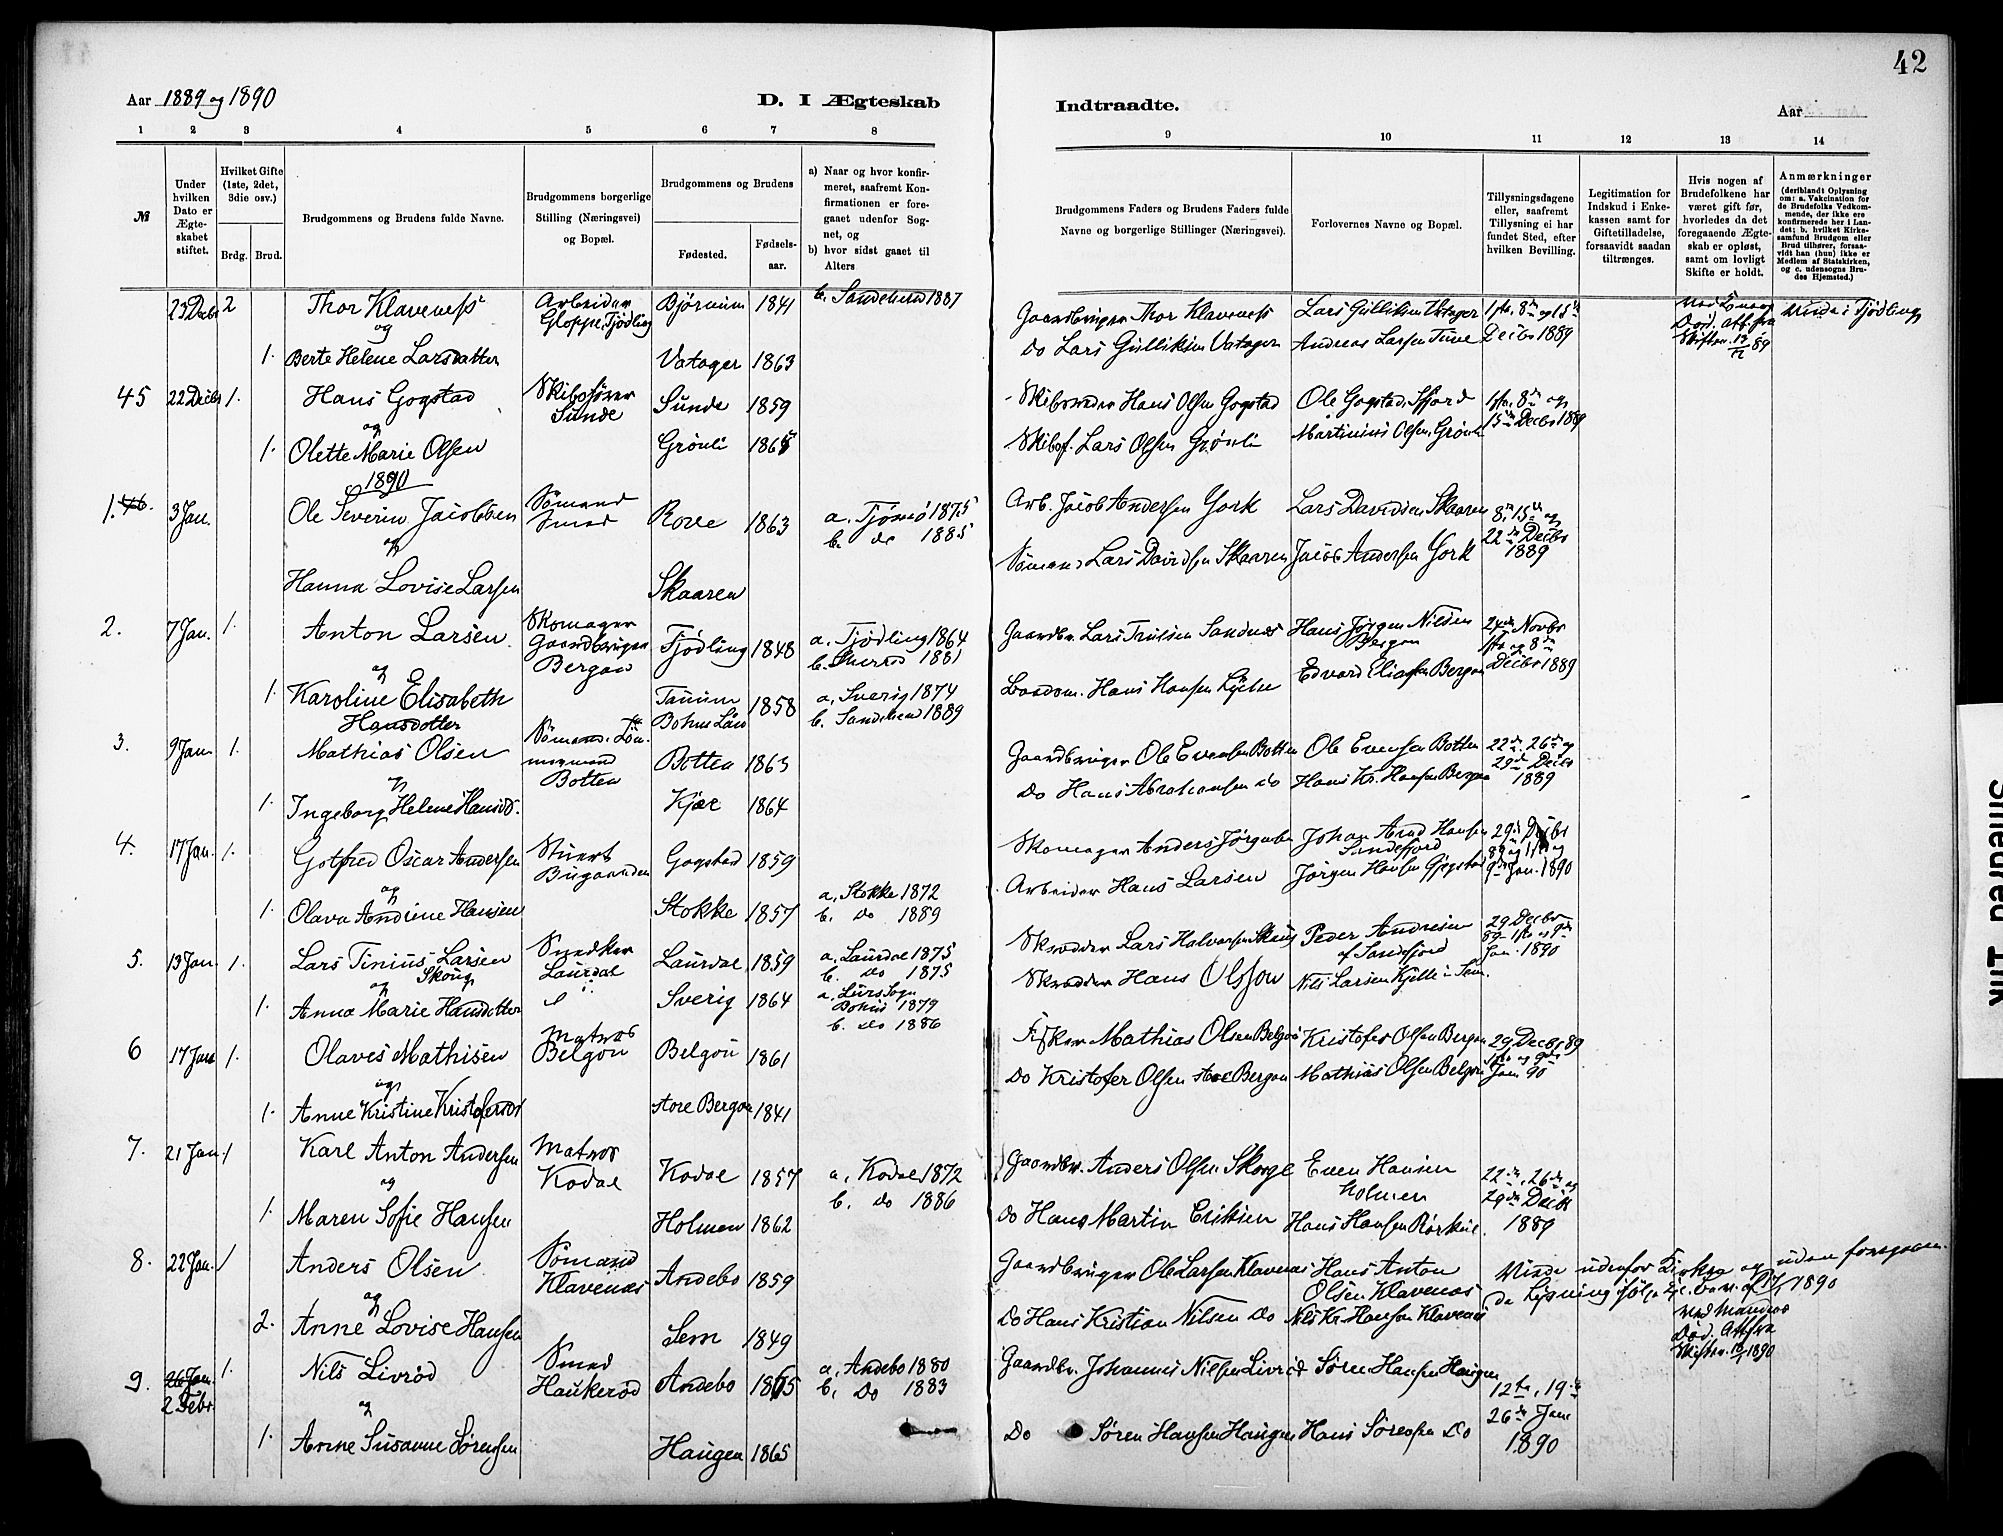 42
Aar 1889 og 1890
D. I Ægteskab
Indtraadte.
Aar
1 2 3 4 5 6 7 8 9 10 11 12 13 14
№
Under hvilken Dato er Ægteskabet stiftet.
Hvilket Gifte (1ste, 2det, 3die osv.)
Brdg. Brud.
Brudgommens og Brudens fulde Navne.
Brudgommens borgerlige Stilling (Næringsvei) og Bopæl.
Brudgommens og Brudens
Fødested.
Fødselsaar.
a) Naar og hvor konfirmeret, saafremt Konfirmationen er foregaaet udenfor Sognet, og
b) hvor sidst gaaet til Alters
Brudgommens Faders og Brudens Faders fulde Navne og borgerlige Stillinger (Næringsvei).
Forlovernes Navne og Bopæl.
Tillysningsdagene eller, saafremt Tillysning ei har fundet Sted, efter hvilken Bevilling.
Legitimation for Indskud i Enkekassen samt for Giftetilladelse, forsaavidt saadan tiltrænges.
Hvis nogen af Brudefolkene har været gift før, hvorledes da det foregaaende Ægteskab er opløst, samt om lovligt Skifte er holdt.
Anmærkninger
(deriblandt Oplysning om: a. Vakcination for de Brudefolks Vedkommende, der ikke ere konfirmerede her i Landet; b. hvilket Kirkesamfund Brudgom eller Brud tilhører, forsaavidt han (hun) ikke er Medlem af Statskirken, og c. udensogns Brudes Hjemsted.)
23 Decbr 2 Thor Klaveness Arbeider Gloppe, Tjødling Bjørnum 1841 b. Sandeherred 1887 Gaardbruger Thor Klaveness Lars Gulliksen Vatager 1ste, 8de og 15de Decbr 1889
og
1. Berte Helene Larsdatter Vatager 1863 Do Lars Gulliksen Vatager Andreas Larsen Tuve
45 22 Decbr 1. Hans Gogstad Skibsfører Sunde Sunde 1859 Skibsreder Hans Olsen Gogstad Ole Gogstad, Sfjord 1ste, 8de og 15de Decbr 1889
og
1. Olette Marie Olsen Grønli 1865 Skibsf. Lars Olsen Grønli Martinius Olsen, Grønli
1890
1. 46. 3 Jan. Ole Severin Jacobsen Sømand Smed Rove 1863 a. Tjømø 1875 b. do 1885 Arb. Jacob Andersen York Lars Davidsen Skaaren 8de, 15de og 22de Decbr 1889
og
Hanna Lovise Larsen Skaaren Sømand Lars Davidsen Skaaren Jacob Andersen York
2. 7 Jan. 1. Anton Larsen Skomager Gaardbruger Bergan Tjødling 1848 a. Tjødling 1864 b. 1881 Gaardbr. Lars Trulsen Sandnes Hans Jørgen Nilsen Bergan 24de Novbr 1ste og 8de Decbr 1889
og
1. Karoline Elisabeth Hansdotter Tanum Bohus Län 1858 a. Sverig 1874 b. Sandeherred 1889 Baadsm. Hans Hansen Lycke Edvard Eliasen Bergan
3. 9 Jan. 1. Mathias Olsen Sømand Botten Botten 1863 Gaardbruger Ole Evensen Botten Ole Evensen Botten 22de, 26de og 29de Decbr 1889
og
1. Ingeborg Helene Hansd. Kjær 1864 Do Hans Abrahamsen do Hans Kr. Hansen Bergan
4. 17 Jan. 1. Gotfred Oscar Andersen Stuert Bugaarden Gogstad 1859 Skomager Anders Jørgensen Johan Arnd Hansen Sandefjord 29de Decbr 89 og 1ste og 9de Jan. 1890
og
1. Olava Andrine Hansen Stokke 1857 a. Stokke 1872 b. Do 1889 Arbeider Hans Larsen Jørgen Hansen Gogstad
5. 13 Jan. 1. Lars Tinius Larsen Skoug Snedker Laurdal Laurdal 1859 a. Laurdal 1875 b. Do 1875 Skrædder Lars Halvorsen Skoug Peder Andresen af Sandefjord 29 Decbr 89 1ste og 9de Jan. 1890
og
1. Anna Marie Hansdotter Sverig 1864 a. Lurs Sogn Bohus 1879 b. Do 1886 Skrædder Hans Olsson Nils Larsen Kjelle i Sem.
6 17 Jan 1. Olaves Mathisen Matros Belgou Belgou 1861 Fisker Mathias Olsen Belgou Kristofer Olsen Bergan 29 Decbr 89 1ste og 9de Jan 90
og
1. Anne Kristine Kristofersd store Bergan 1841 Do Kristofer Olsen store Bergan Mathias Olsen Belgou
7. 21 Jan. 1 Karl Anton Andersen Matros Kodal Kodal 1857 a. Kodal 1872 b. Do 1886 Gaardbr. Anders Olsen Skorge Even Hansen Holmen 22de, 26de og 29de Decbr 1889
og
1. Maren Sofie Hansen Holmen 1862 Do Hans Martin Eriksen Hans Hansen Rørkoll.
8. 22 Jan. 1 Anders Olsen Sømand Klavenes Andebo 1859 Gaardbruger Ole Larsen Klavenes Hans Anton Olsen Klavenes Viede udenfor Kirken og uden foregaaende Lysning ifølge 17/1 1890
og
2. Anne Lovise Hansen Sem 1849 Do Hans Kristian Nilsen Do Nils Kr. Hansen Klavenes ved Mandens Død. Att. fra Skifter. 13/1 1890
9. 26 Jan. 2 Febr. 1. Nils Livrød Smed Haukerød Andebo 1865 a. Andebo 1880 b. Do 1883 Gaardbr. Johannes Nilsen Livrød Søren Hansen Haugen 12te, 19de 26de Jan 1890
og
1. Anne Susanne Sørensen Haugen 1865 Do Søren Hansen Haugen Hans Sørensen Do
Smedrud Trik